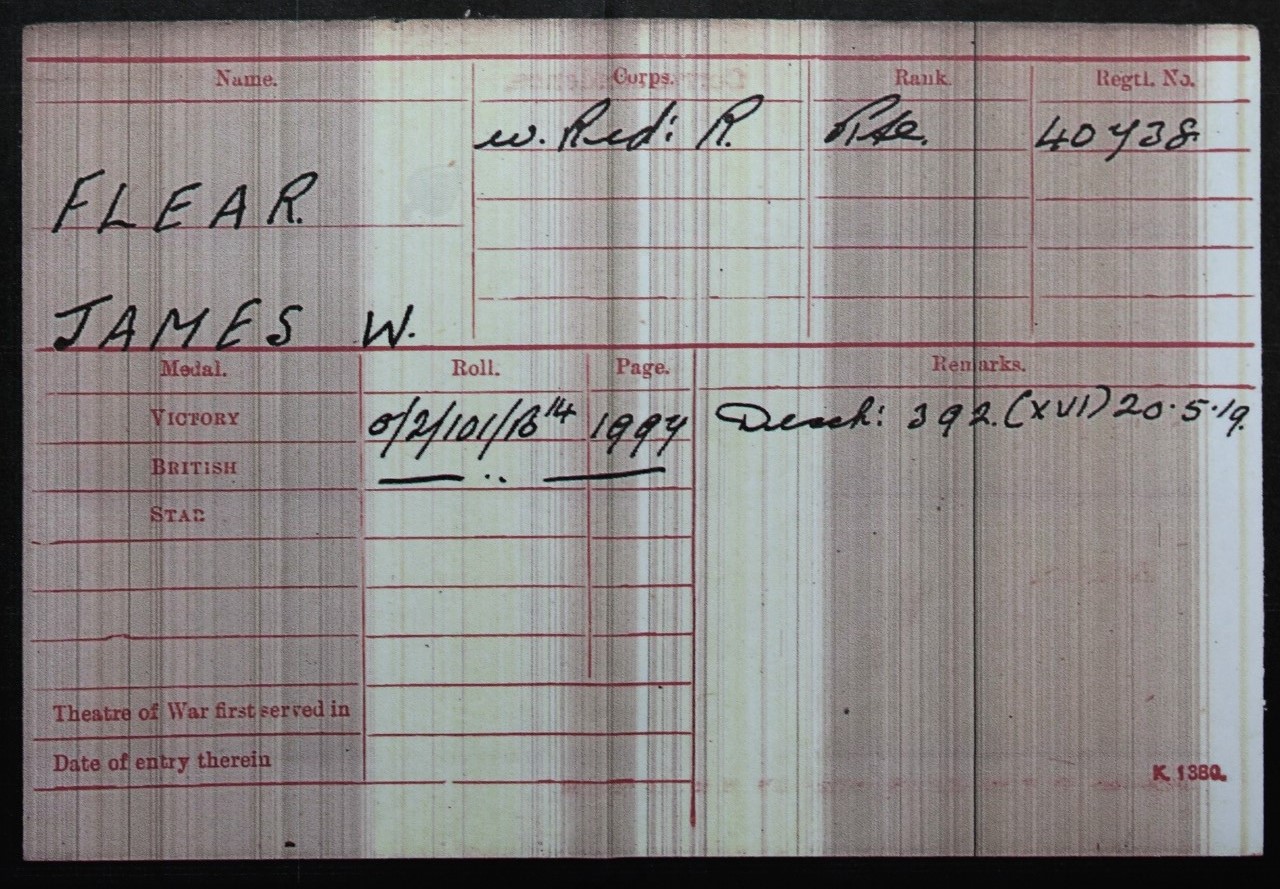 Name. Corps. Rank. Regtl. No.
W. Rid: R. Pte. 40738
FLEAR
JAMES W.
Medal. Roll. Page. Remarks.
VICTORY O/2/101/B14 1997 Disch: 392.(XVI)20.5.19.
BRITISH — .. —
STAR
Theatre of War first served in
Date of entry therein
K. 1380.